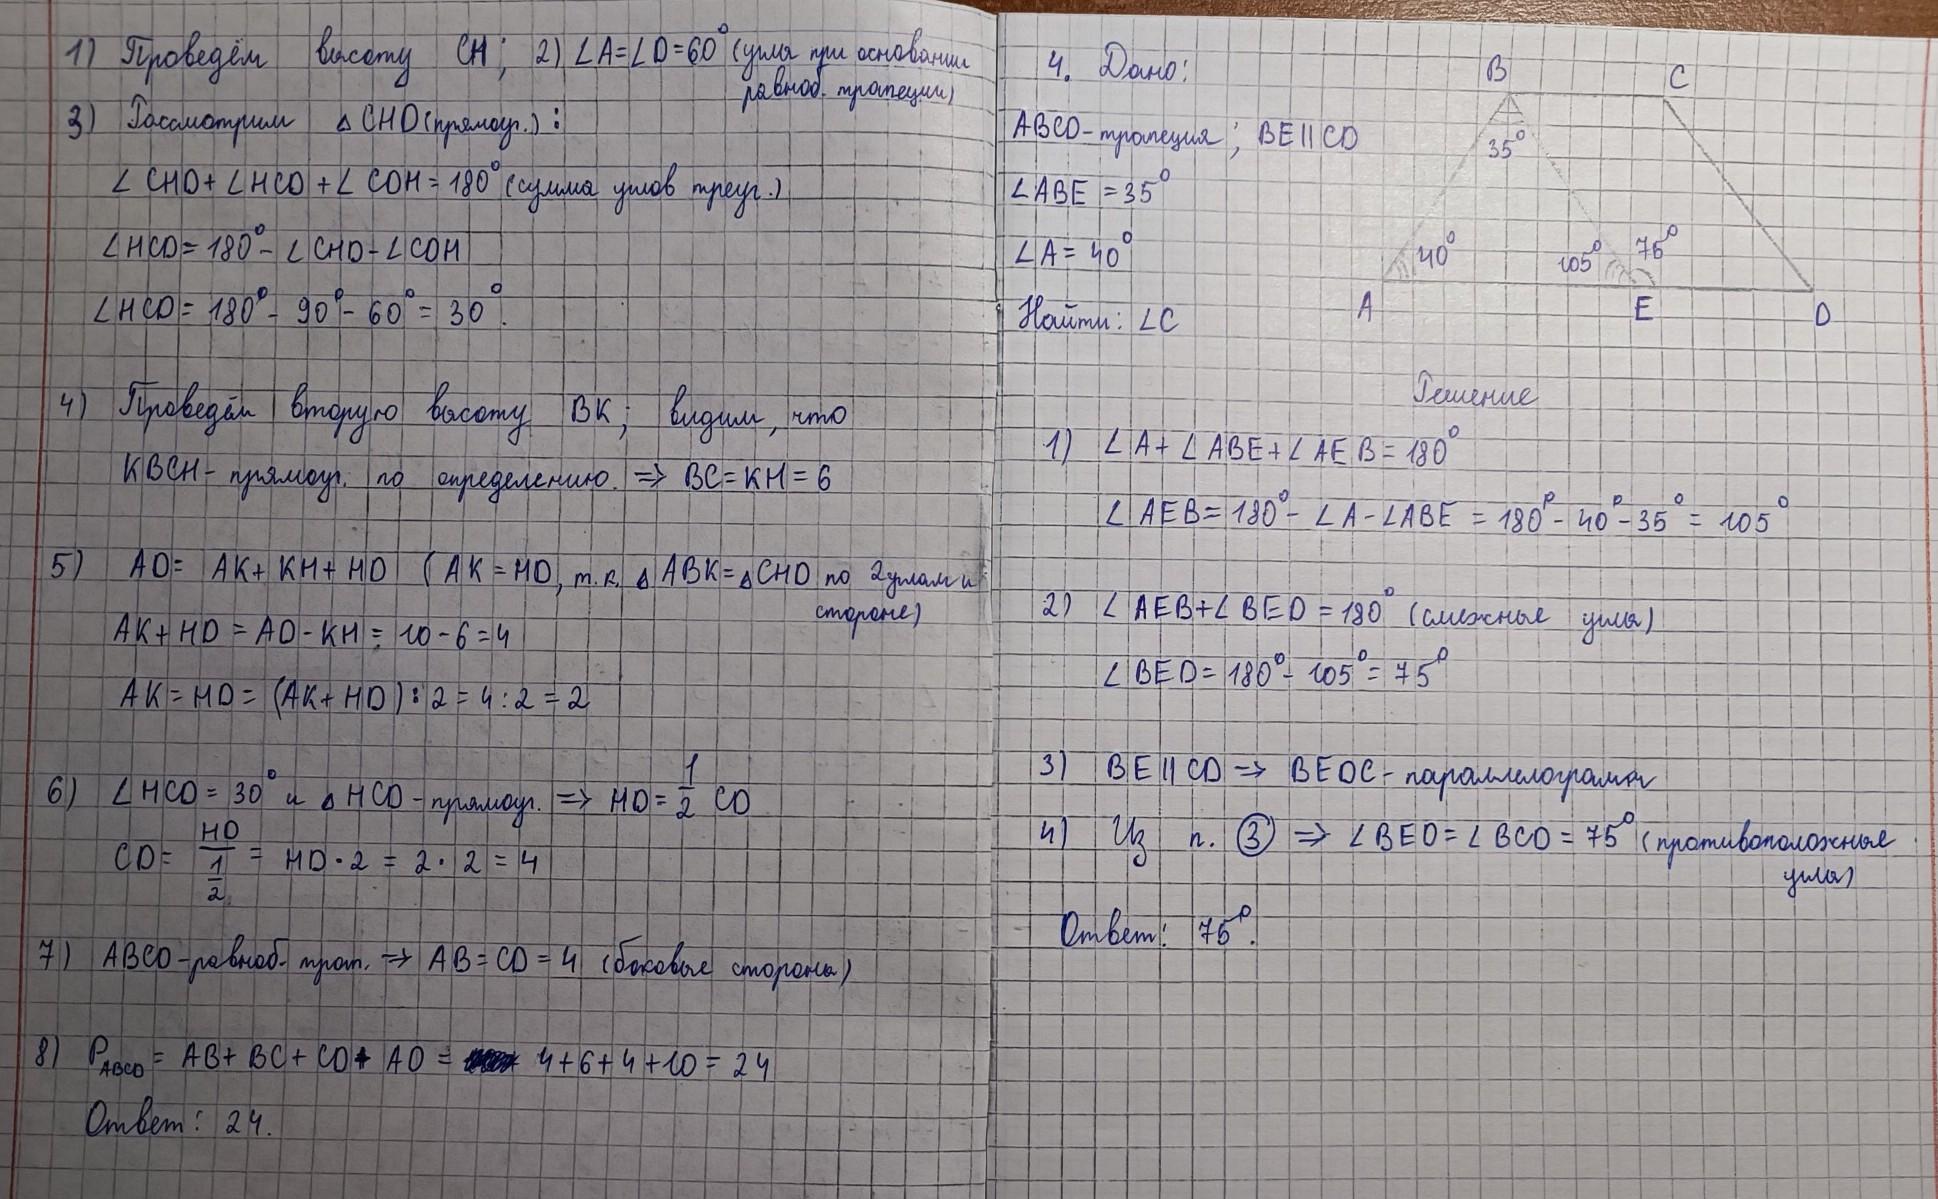 1) Проведём высоту CH; 2) ∠A=∠D=60° (углы при основании
равноб. трапеции)
3) Рассмотрим △CHD (прямоуг.):
∠CHD+∠HCD+∠CDH=180° (сумма углов треуг.)
∠HCD=180°-∠CHD-∠CDH
∠HCD=180°-90°-60°=30°.
4) Проведём вторую высоту BK; видим, что
KBCH-прямоуг. по определению. => BC=KH=6
5) AD= AK+KH+HD (AK=HD, т.к. △ABK=△CHD по 2 углам и
стороне)
AK+HD=AD-KH=10-6=4
AK=HD=(AK+HD):2=4:2=2
6) ∠HCD=30° и △HCD-прямоуг. => HD=1/2 CD
CD= HD/(1/2) = HD·2 = 2·2=4
7) ABCD-равноб. трап. => AB=CD=4 (боковые стороны)
8) P_ABCD = AB+BC+CD+AD = 4+6+4+10=24
Ответ: 24.
4. Дано:
ABCD-трапеция; BE||CD
∠ABE=35°
∠A=40°
Найти: ∠C
B
C
35°
40°
105°
75°
A
E
D
Решение
1) ∠A+∠ABE+∠AEB=180°
∠AEB=180°-∠A-∠ABE=180°-40°-35°=105°
2) ∠AEB+∠BED=180° (смежные углы)
∠BED=180°-105°=75°
3) BE||CD => BEDC-параллелограмм
4) Из п. 3 => ∠BED=∠BCD=75° (противоположные
углы)
Ответ: 75°.